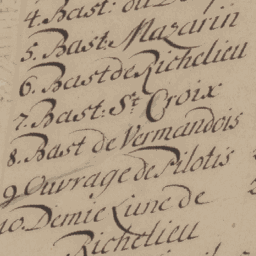 4. Bast: du
5. Bast: Mazarin
6. Bast de Richelieu
7. Bast: St Croix
8. Bast de Vermandois
9 Ouvrage de Pilotis
10. Demie Lune de
Richelieu